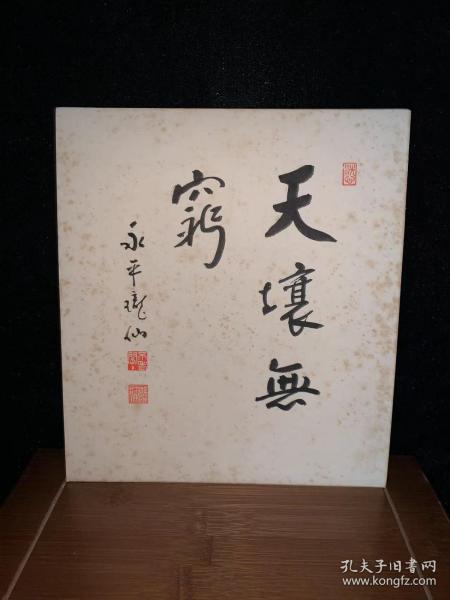 天壤無
窮
永平瓏仙
孔夫子旧书网
www.kongfz.com